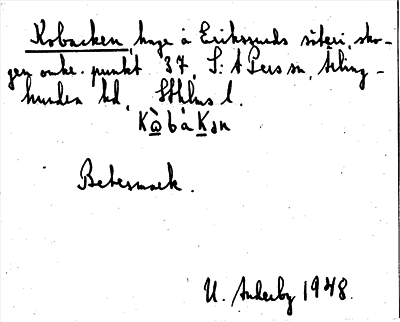 Kobacken, hage å Eriksunds säteri, sko-
gen omkr. punkt 37, S:t Pers sn, Ärling-
hundra hd, Sthlms l.
Kò̱bàḵən
Betesmark.
U. Anderby 1948.